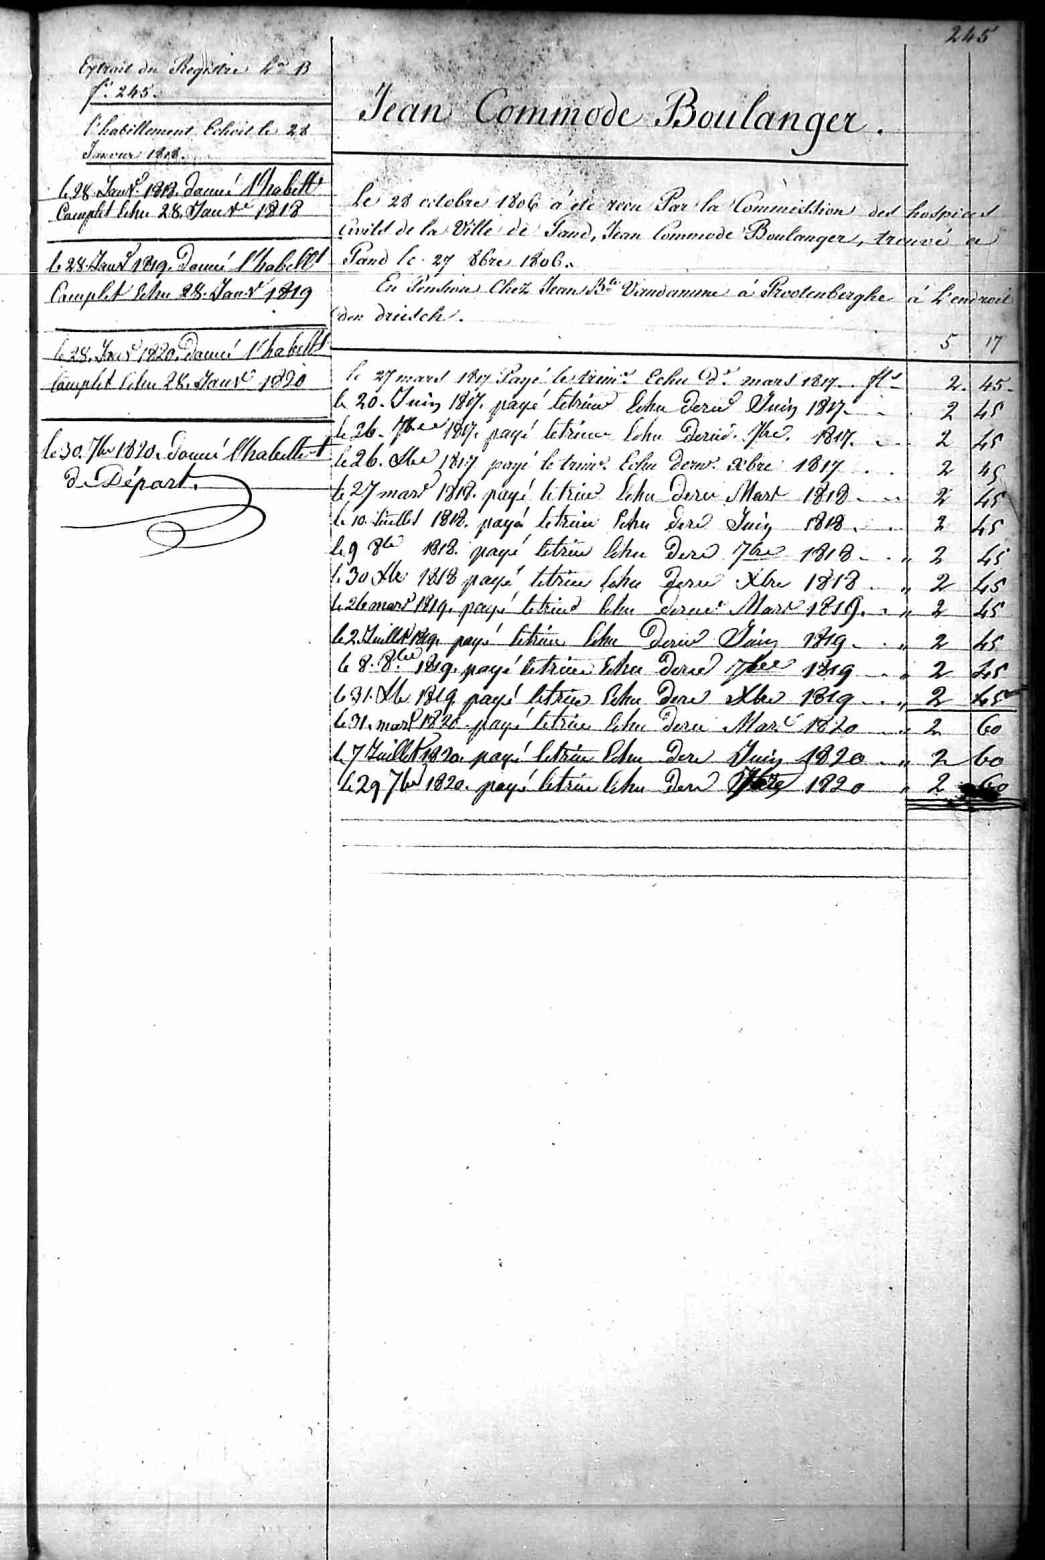 245
Extrait du Registre L.ra B
f.o 245.
l'habillement Echoit le 28
Janvier 1818.
le 28 Janv.r 1818. donné l'habill.t
Complet Echu 28. Janv.r 1818
le 28. Janv.r 1819. Donné l'habill.t
Complet Echu 28. Janv.r 1819
le 28. Janv.r 1820. Donné l'habill.t
Complet Echu 28. Janv.r 1820
le 30. 7bre 1820. donné l'habillem.t
de Départ.
Jean Commode Boulanger.
Le 28 octobre 1806 a été recu Par la Commission des hospices
Civils de la Ville de Gand, Jean Commode Boulanger, trouvé a
Gand le 27 8bre 1806.
En Pension Chez Jean B.te Vandamme à Grootenberghe à L'endroit
den driesch.
5 17
le 27 mars 1817 Payé le trim.e Echu D.r mars 1817 fls 2. 45.
le 20. Juin 1817. payé letrim Echu dernr Juin 1817 2 45
le 26. 7bre 1817. payé letrim Echu dernr. 7bre. 1817. 2 45
le 26. Xbre 1817 payé le trim.e Echu dernr. xbre 1817 2 45
le 27 mars 1818. payé letrim Echu dernr Mars 1818 2 45
le 10. Juillet 1818. payé letrim Echu dernr Juin 1818. 2 45
le 9 8bre 1818. payé letrim Echu dernr 7bre 1818 " 2 45
le 30 Xbre 1818 payé letrim Echu dernr Xbre 1818 " 2 45
le 26 mars 1819. payé letrim Echu dernr Mars 1819. " 2 45
le 2. Juillet 1819. payé letrim Echu Dernr Juin 1819 " 2 45
le 8. 8bre 1819. payé letrim Echu dernr 7bre 1819 " 2 45
le 31. Xbre 1819 payé letrim Echu dernr Xbre 1819 " 2 45
le 31. mars 1820 payé letrim Echu dernr Mars 1820 " 2 60
le 7 Juillet 1820. payé letrim Echu dernr Juin 1820 " 2 60
le 29 7bre 1820. payé letrim Echu dernr 7bre 1820 " 2 60